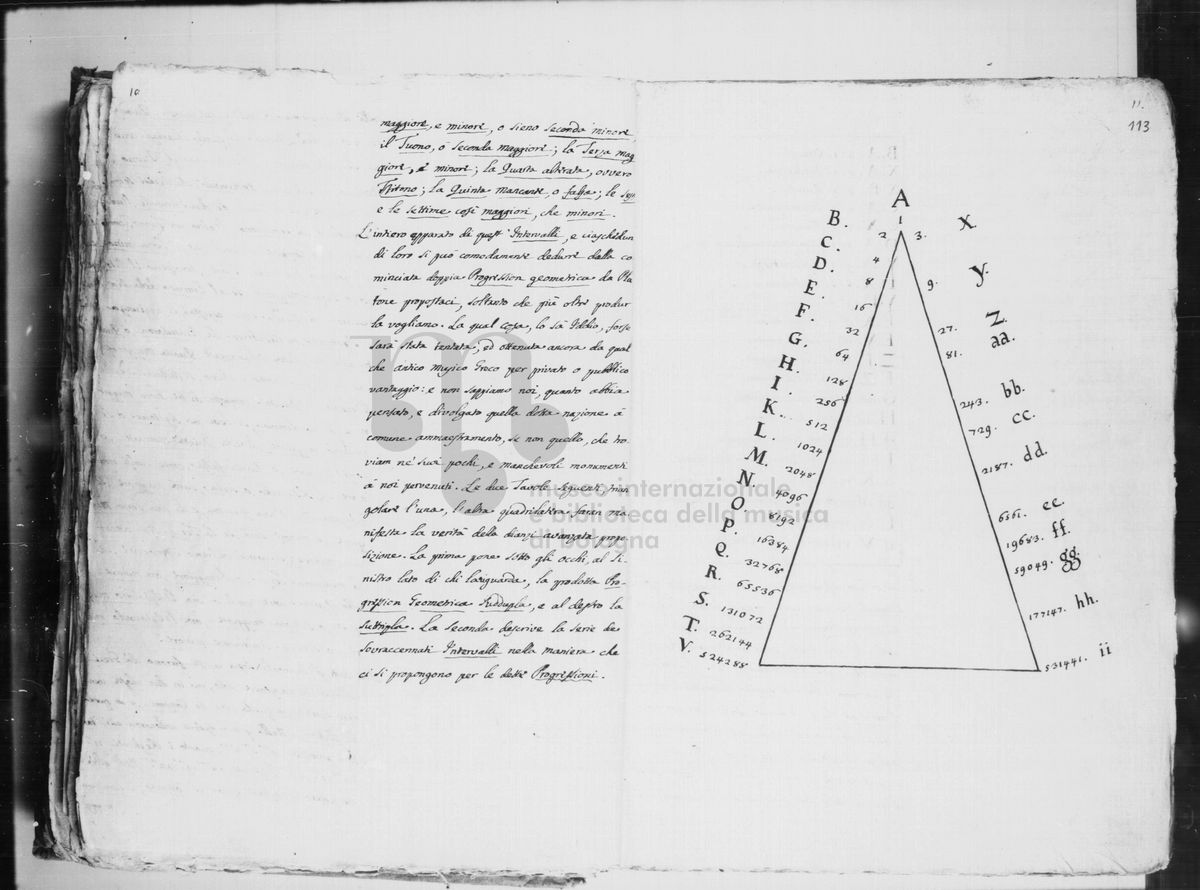 10
maggiore, e minore, o sieno seconda minore
il Tuono, o seconda maggiore; la Terza mag
giore, e minore; la Quarta alterata, ovvero
Tritono; la Quinta mancante, o falsa; le
e le settime così maggiori, che minori.
L'intiero apparato di questi Intervalli, e ciaschedun
di loro si può comodamente dedure dalla co
minciata doppia Progression geometrica da Pla
tone propostaci, soltanto che più oltre produr
la vogliamo. La qual cosa, lo sà Iddio, forse
sarà stata tentata, ed ottenuta ancora da qual
che antico Musico Greco per privato o pubblico
vantaggio: e non sappiamo noi, quanto abbia
pensato, e divolgato quella dotta nazione à
comune ammaestramento, se non quello, che tro
viam ne' suoi pochi, e manchevoli monumenti
à noi pervenuti. Le due Tavole seguenti trian
golare l'una, l'altra quadrilatera faran ma
nifesta la verità della dianzi avanzata propo
sizione. La prima pone sotto gli occhi, al si
nistro lato di chi la riguarda, la prodotta Pro-
gression Geometrica suddupla, e al destro la
suttripla. La seconda descrive la serie de
sovraccennati Intervalli nella maniera che
ci si propongono per le dette Progressioni.
11.
113
A
1
B. 2 3. X
C. 4
D. 8 9. y.
E. 16
F. 32 27. Z
G. 64 81. aa.
H. 128
I. 256 243. bb.
K. 512 729. cc.
L. 1024
M. 2048 2187. dd.
N. 4096
O. 8192 6561. ee.
P. 16384 19683. ff.
Q. 32768 59049. gg.
R. 65536
S. 131072 177147. hh.
T. 262144
V. 524288 531441. ii
museo internazionale
e biblioteca della musica
di bologna